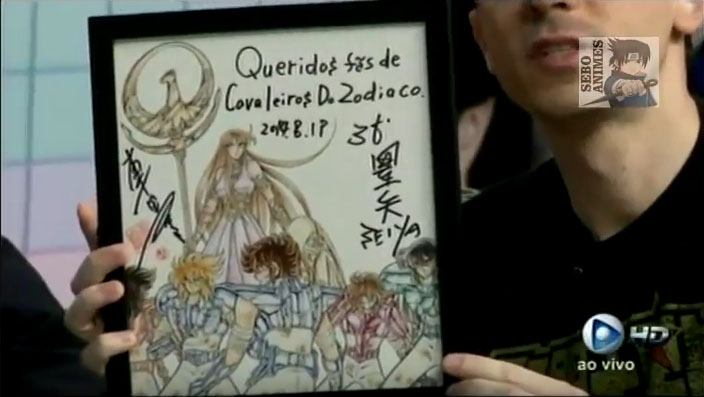 Queridos fãs de
Cavaleiros Do Zodiaco.
2014.8.17
星矢
SEIYA
SEBO
ANIMES
HD
ao vivo